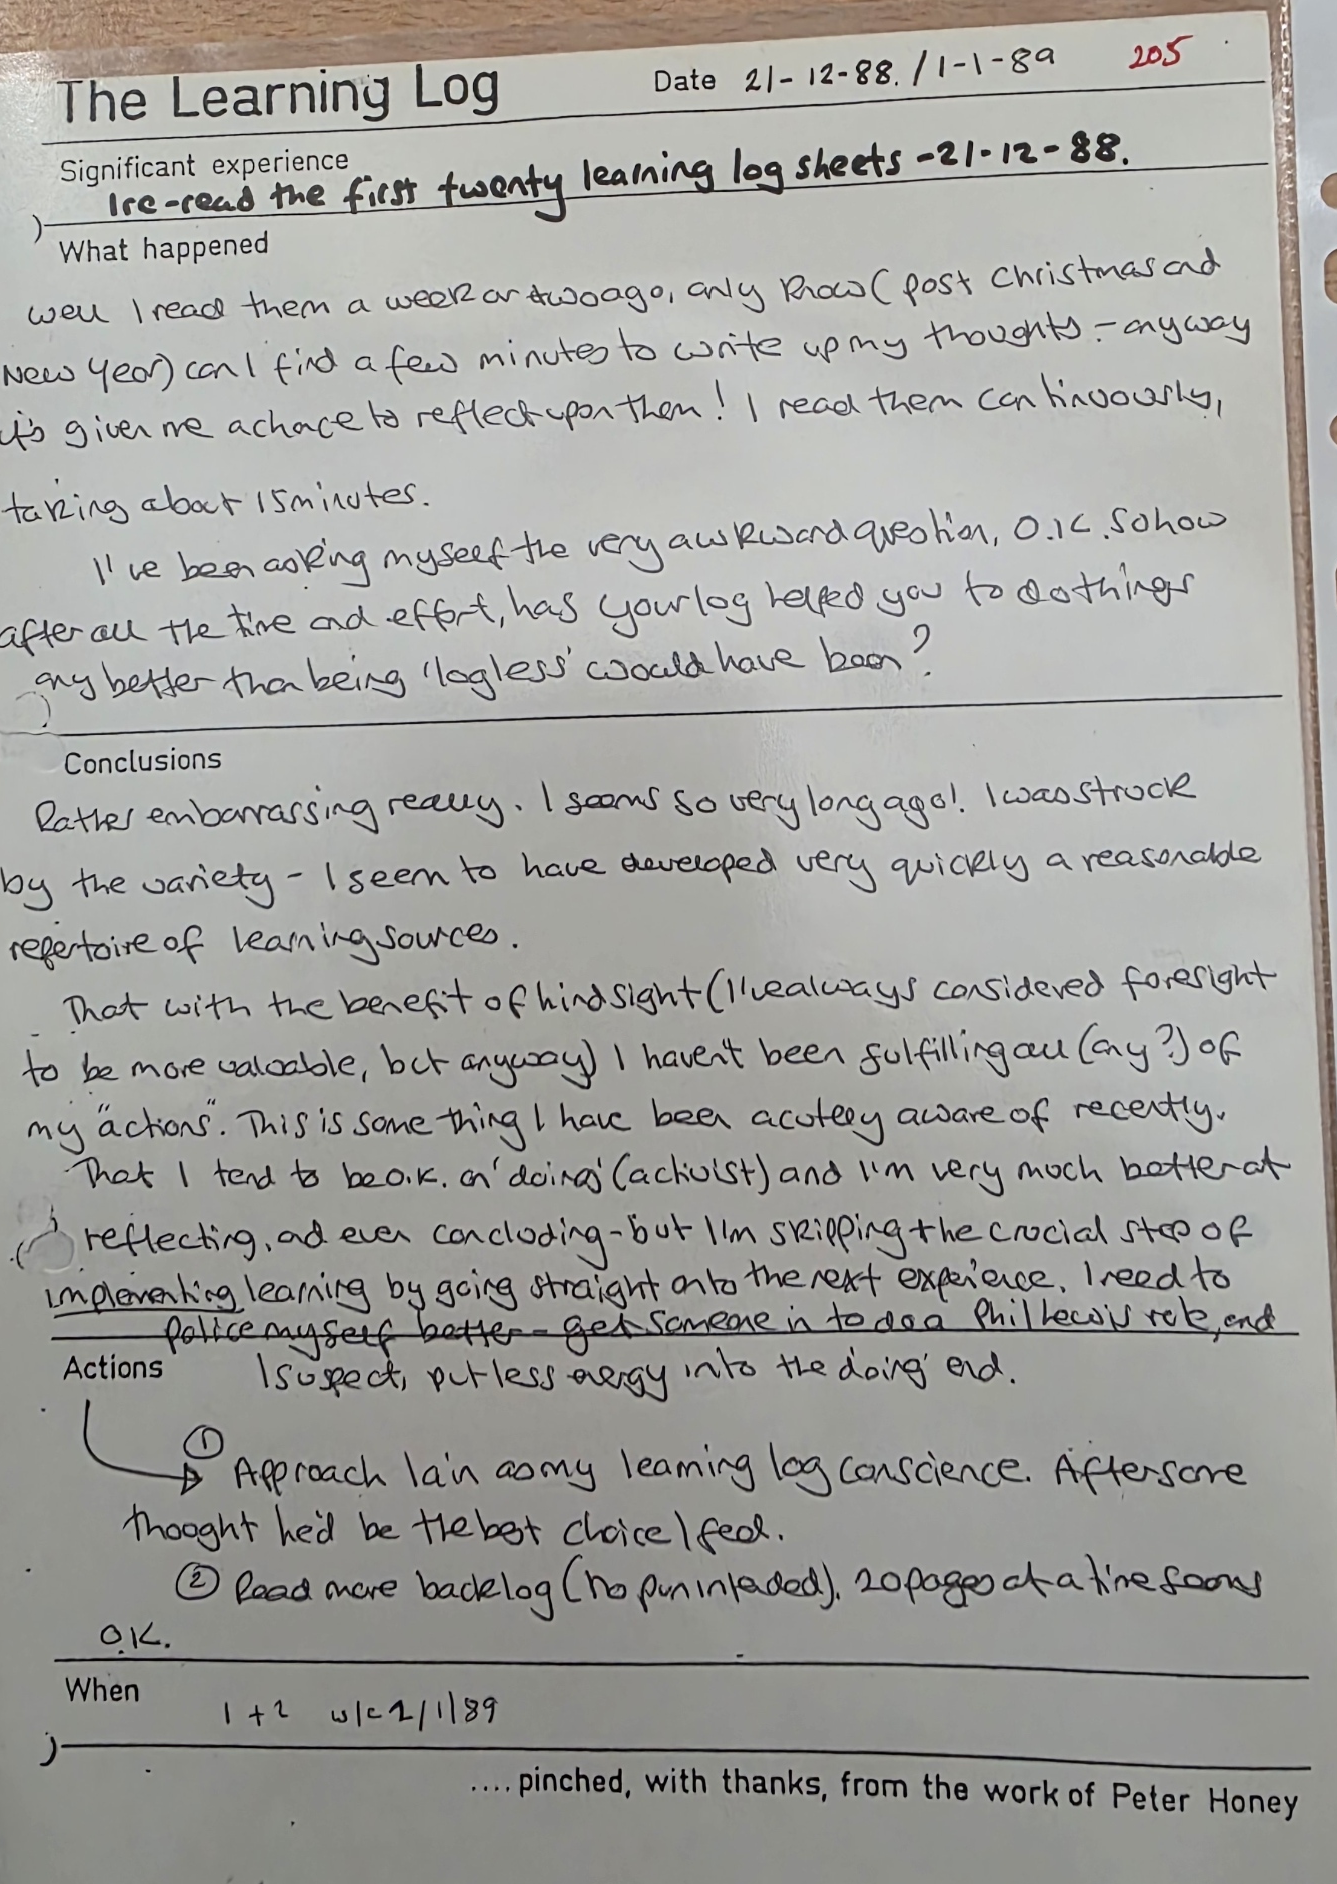 The Learning Log
Date 21-12-88. / 1-1-89
205
Significant experience
I re-read the first twenty learning log sheets - 21-12-88.
What happened
well I read them a week or two ago, only know (post Christmas and
New Year) can I find a few minutes to write up my thoughts - anyway
it's given me a chace to reflect upon them! I read them continuously,
taking about 15 minutes.
I've been asking myself the very awkward question, O.K. so how
after all the time and effort, has your log helped you to do things
any better than being 'logless' would have been?
Conclusions
Rather embarrassing really. I seems so very long ago!. I was struck
by the variety - I seem to have developed very quickly a reasonable
repertoire of learning sources.
That with the benefit of hindsight (I've always considered foresight
to be more valuable, but anyway) I haven't been fulfilling all (any?) of
my "actions". This is something I have been acutely aware of recently.
That I tend to be o.k. on 'doing' (activist) and I'm very much better at
reflecting, and even concluding - but I'm skipping the crucial step of
implementing learning by going straight onto the next experience. I need to
police myself better - get someone in to do a Phil Lewis role, and
Actions
I suspect, put less energy into the 'doing' end.
① Approach Iain as my learning log conscience. After some
thought he'd be the best choice I feel.
② Read more backlog (no pun intended). 20 pages at a time seems
O.K.
When
1 + 2 w/c 2/1/89
.... pinched, with thanks, from the work of Peter Honey